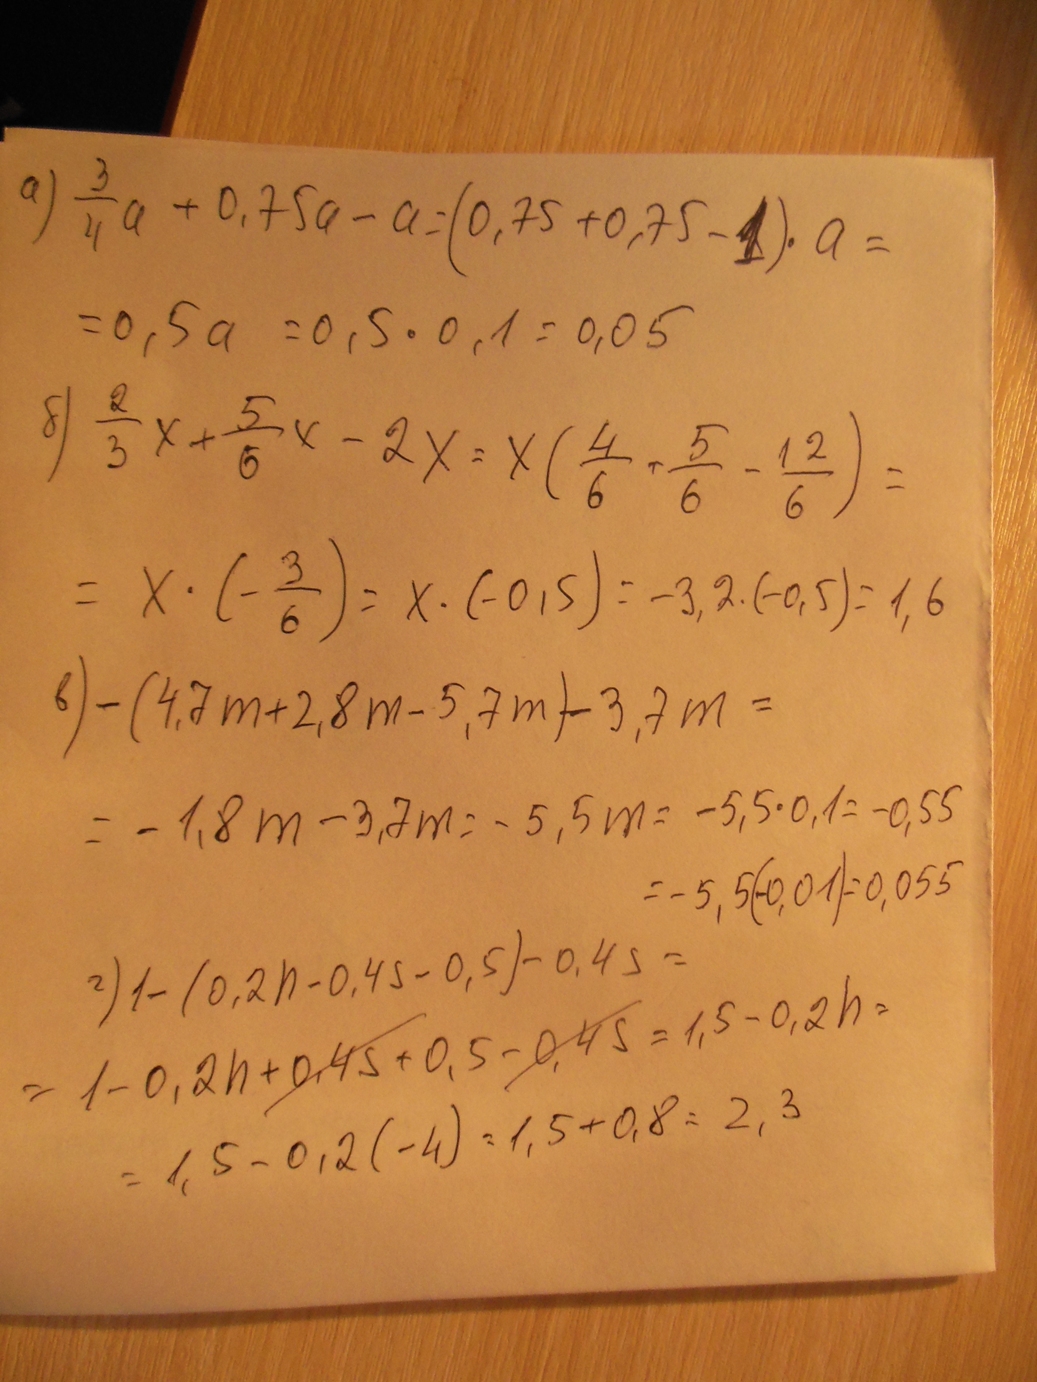 а) 3/4 a + 0,75a - a = (0,75 + 0,75 - 1) · a =
= 0,5a = 0,5 · 0,1 = 0,05
б) 2/3 x + 5/6 x - 2x = x (4/6 + 5/6 - 12/6) =
= x · (- 3/6) = x · (-0,5) = -3,2 · (-0,5) = 1,6
в) - (4,7m + 2,8m - 5,7m) - 3,7m =
= - 1,8m - 3,7m = - 5,5m = -5,5 · 0,1 = -0,55
= -5,5(-0,01) = 0,055
г) 1 - (0,2n - 0,4s - 0,5) - 0,4s =
= 1 - 0,2n + 0,4s + 0,5 - 0,4s = 1,5 - 0,2n =
= 1,5 - 0,2(-4) = 1,5 + 0,8 = 2,3